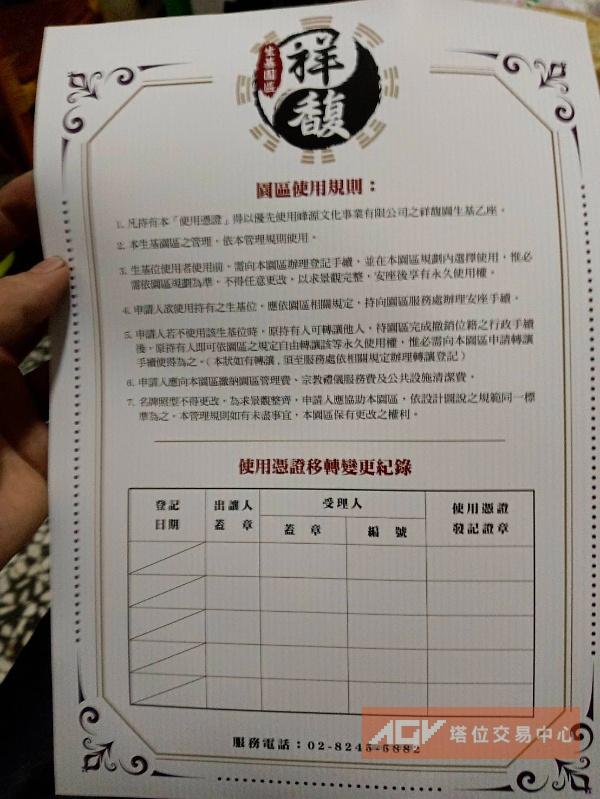 生基園區
祥
馥
園區使用規則：
1. 凡持有本「使用憑證」得以優先使用峰源文化事業有限公司之祥馥園生基乙座。
2. 本生基園區之管理，依本管理規則使用。
3. 生基位使用者使用前，需向本園區辦理登記手續，並在本園區規劃內選擇使用，惟必
需依園區規劃為準，不得任意更改，以求景觀完整，安座後享有永久使用權。
4. 申請人欲使用持有之生基位，應依園區相關規定，持向園區服務處辦理安座手續。
5. 申請人若不使用該生基位時，原持有人可轉讓他人，待園區完成撤銷位籍之行政手續
後，原持有人即可依園區之規定自由轉讓該等永久使用權，惟必需向本園區申請轉讓
手續使得為之。(本狀如有轉讓，須至服務處依相關規定辦理轉讓登記)
6. 申請人應向本園區繳納園區管理費、宗教禮儀服務費及公共設施清潔費。
7. 名牌照型不得更改，為求景觀整齊，申請人應協助本園區，依設計圖說之規範同一標
準為之。本管理規則如有未盡事宜，本園區保有更改之權利。
使用憑證移轉變更紀錄
登記
日期
出讓人
蓋 章
受理人
蓋 章
編 號
使用憑證
發記證章
服務電話：02-8245-6882
AGV 塔位交易中心